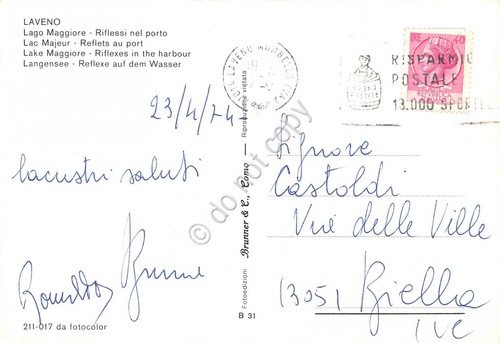 LAVENO
Lago Maggiore - Riflessi nel porto
Lac Majeur - Reflets au port
Lake Maggiore - Riflexes in the harbour
Langensee - Reflexe auf dem Wasser
23/4/74-
lacustri saluti
Bruna
211-017 da fotocolor
Fotoedizioni Brunner & C., Como - Riproduzione vietata
B 31
LAVENO MOMBELLO
RISPARMIO
POSTALE
13.000 SPORTEL
40
© do not copy
Signore
Castoldi
Via delle Ville
13051 Biella